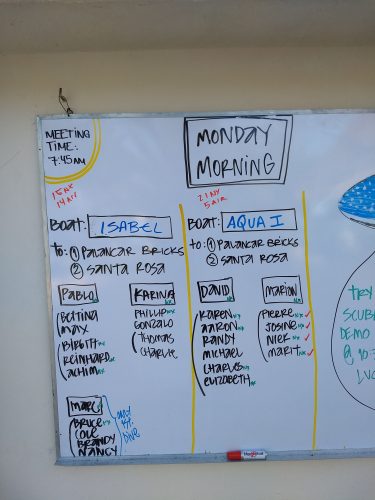 MEETING
TIME:
7:45AM
MONDAY
MORNING
21 NX
5 AIR
BOAT: ISABEL
TO: ① PALANCAR BRICKS
② SANTA ROSA
PABLO
BETTINA
MAX
BIRGITH NX
REINHARD NX
ACHIM NX
KARINA NX
PHILLIP NX
GONZALO
THOMAS
CHARLIE
MARC
BRUCE NX
COLE
BRANDY
NANCY
DIVE
BOAT: AQUA I
TO: ① PALANCAR BRICKS
② SANTA ROSA
DAVID NX
KAREN NX
AARON NX
RANDY
MICHAEL
CHARLES NX
ELIZABETH NX
MARION NX
PIERRE NX ✓
JOSINE NX ✓
NIEK NX ✓
MARIT NX ✓
TRY
SCUBA
DEMO
@ 10:3